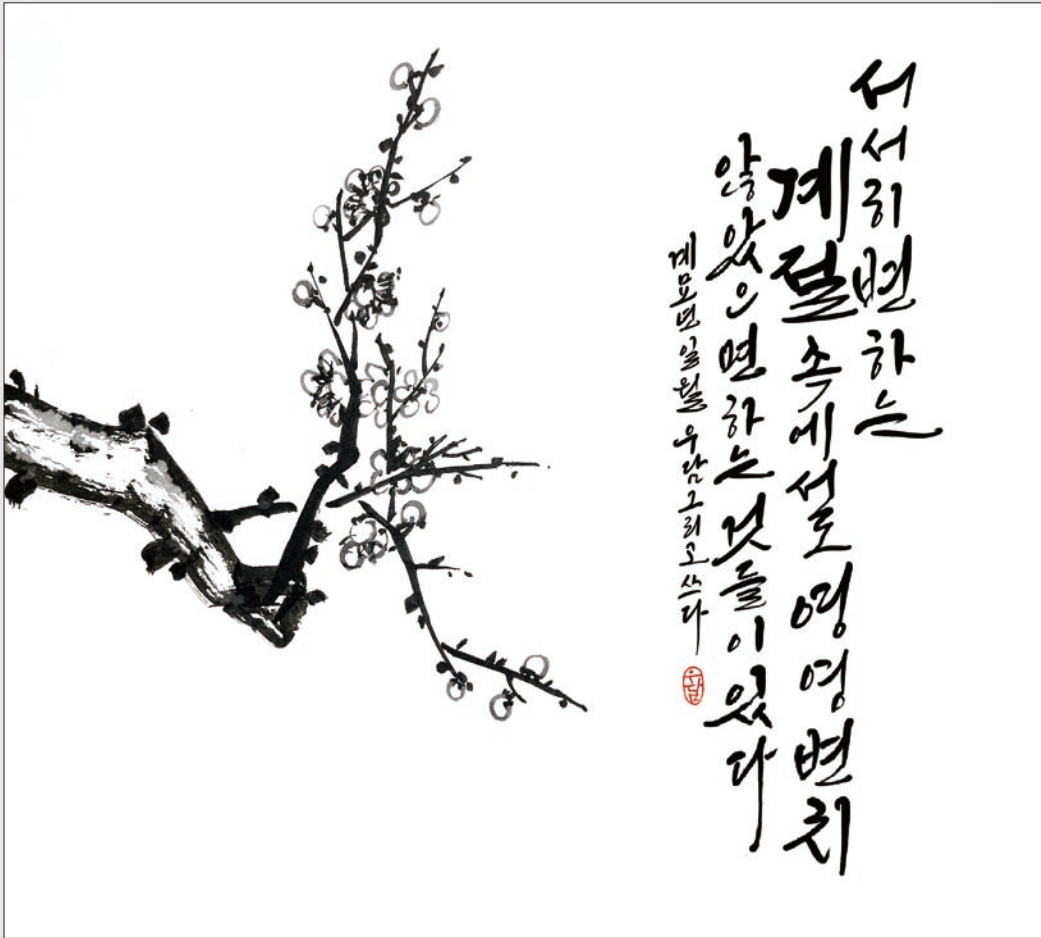 서서히 변하는
계절 속에서도 영영 변치
않았으면 하는 것들이 있다
계묘년 일월 우담 그리고 쓰다
우담